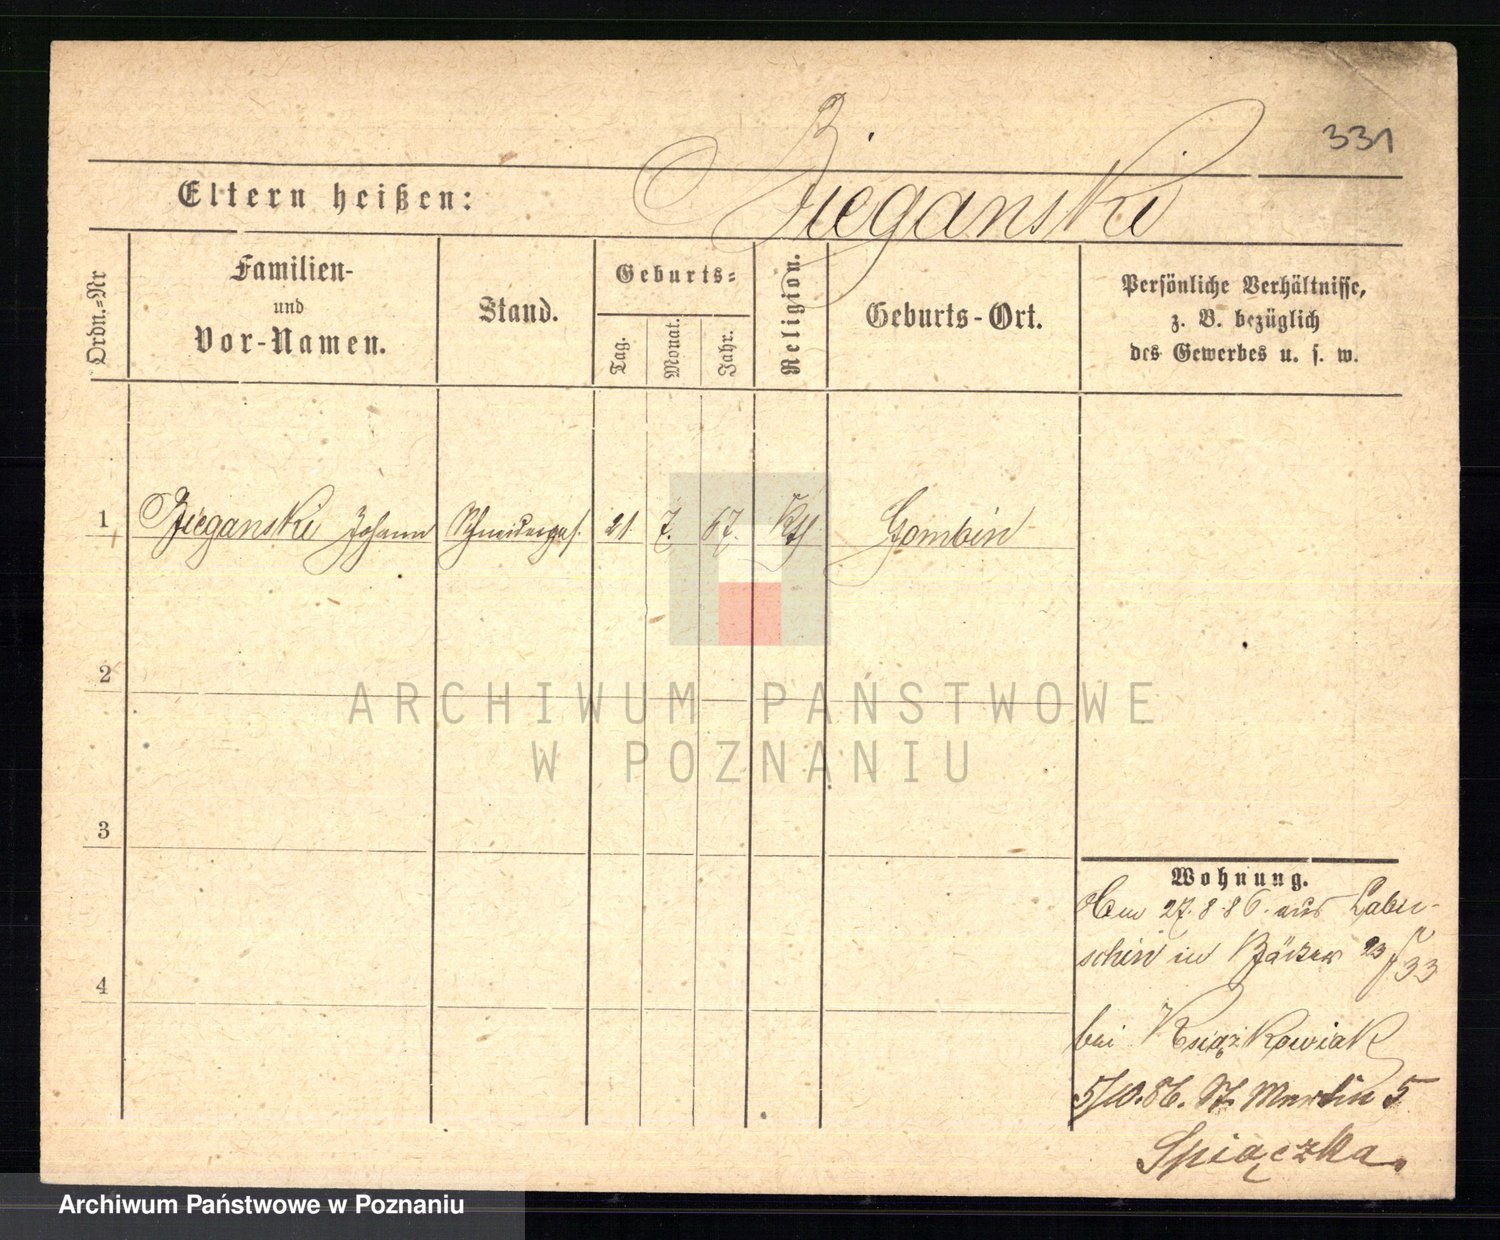 331
Eltern heißen: Bieganski
Ordn.-Nr
Familien-
und
Vor-Namen.
Stand.
Geburts-
Tag.
Monat.
Jahr.
Religion.
Geburts-Ort.
Persönliche Verhältnisse,
z. B. bezüglich
des Gewerbes u. s. w.
1 Bieganski Johann Schneiderges. 21 7. 67. Kth Gombin
2
3
4
Wohnung.
27.8.86. aus Labi-
schin in 23/33
bei Książkowiak
5/10.86. St. Martin 5
Spiączka.
ARCHIWUM PAŃSTWOWE
W POZNANIU
Archiwum Państwowe w Poznaniu